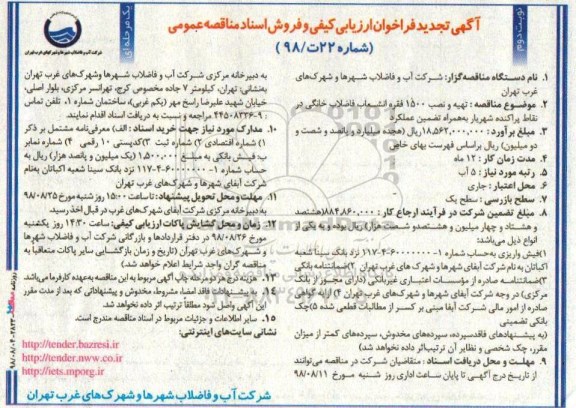 نوبت دوم
آگهی تجدید فراخوان ارزیابی کیفی و فروش اسناد مناقصه عمومی
(شماره ۲۲ت/۹۸)
یک مرحله ای
شرکت آب و فاضلاب شهرها و شهرکهای غرب تهران
۱. نام دستگاه مناقصه‌گزار: شرکت آب و فاضلاب شهرها و شهرک‌های
غرب تهران
۲. موضوع مناقصه : تهیه و نصب ۱۵۰۰ فقره انشعاب فاضلاب خانگی در
نقاط پراکنده شهریار به‌همراه تضمین عملکرد
۳. مبلغ برآورد : ۱۸,۵۶۲,۰۰۰,۰۰۰ ریال (هجده میلیارد و پانصد و شصت و
دو میلیون) ریال براساس فهرست بهای خاص
۴. مدت زمان کار : ۱۲ ماه
۵. رتبه مورد نیاز : ۵ آب
۶. محل اعتبار : جاری
۷. سطح بازرسی : سطح یک
۸. مبلغ تضمین شرکت در فرآیند ارجاع کار : ۸۸۴,۸۶۰,۰۰۰ (هشتصد
و هشتاد و چهار میلیون و هشتصدو شصت هزار) ریال بوده و به یکی از
انواع ذیل می‌باشد:
۱)فیش واریزی به‌حساب شماره ۱-۶۰۰۰۰۰۰-۴-۱۱۷ نزد بانک سینا شعبه
اکباتان به نام شرکت آبفای شهرها و شهرک های غرب تهران ۲)ضمانتنامه بانکی
۳)ضمانتنامه صادره از مؤسسات اعتباری غیربانکی (دارای مجوز از بانک
مرکزی) در وجه شرکت آبفای شهرها و شهرک‌های غرب تهران ۴)گواهی
صادره از امور مالی شرکت آبفا مبنی بر کسر از مطالبات قطعی شده ۵)چک
بانکی تضمینی
(به پیشنهادهای فاقدسپرده، سپرده‌های مخدوش، سپرده‌های کمتر از میزان
مقرر، چک شخصی و نظایر آن ترتیب‌اثر داده نخواهد شد)
۹. مهلت و محل دریافت اسناد : متقاضیان شرکت در مناقصه می‌توانند
از تاریخ درج آگهی تا پایان ساعت اداری روز شنبه مورخ ۹۸/۰۸/۱۱
به دبیرخانه مرکزی شرکت آب و فاضلاب شهرها وشهرک های غرب تهران
به‌نشانی: تهران، کیلومتر ۷ جاده مخصوص کرج، تهرانسر مرکزی، بلوار اصلی،
خیابان شهید علیرضا راسخ مهر (یکم غربی)، ساختمان شماره ۱، تلفن تماس
: ۹-۴۴۵۰۸۳۳۶ مراجعه و نسبت به دریافت اسناد اقدام نمایند.
۱۰. مدارک مورد نیاز جهت خرید اسناد : الف) معرفی‌نامه مشتمل بر ذکر
۱) شماره اقتصادی ۲) شماره ثبت ۳)کدپستی ۱۰ رقمی ۴) شماره نمابر
ب: فیش بانکی به مبلغ ۱,۵۰۰,۰۰۰ (یک میلیون و پانصد هزار) ریال به
حساب شماره ۱-۶۰۰۰۰۰۰-۴-۱۱۷ نزد بانک سینا شعبه اکباتان به‌نام
شرکت آبفای شهرها و شهرک های غرب تهران
۱۱. مهلت و محل تحویل پیشنهاد: تا ساعت ۱۵:۰۰ روز شنبه مورخ ۹۸/۰۸/۲۵
به دبیرخانه مرکزی شرکت آبفای شهرک‌های غرب در قبال اخذ رسید.
۱۲. زمان و محل گشایش پاکات ارزیابی کیفی: ساعت ۱۴:۳۰ روز یکشنبه
مورخ ۹۸/۰۸/۲۶ در دفتر قراردادها و بازرگانی شرکت آب و فاضلاب شهرها
و شهرک‌های غرب تهران (تاریخ و زمان بازگشایی سایر پاکات متعاقباً به
مناقصه گران واجد شرایط اعلام خواهد شد.)
۱۳. هزینه درج هر دو مرحله چاپ آگهی مربوط به این مناقصه به‌عهده کارفرما می‌باشد.
۱۴. به پیشنهادات فاقد امضا، مشروط، مخدوش و پیشنهاداتی که بعد از مدت مقرر
این آگهی واصل شود مطلقاً ترتیب اثر داده نخواهد شد.
۱۵. سایر اطلاعات و جزئیات مربوط در اسناد مناقصه مندرج است.
نشانی سایت‌های اینترنتی:
http://tender.bazresi.ir
http://tender.nww.co.ir
http://iets.mporg.ir
شرکت آب و فاضلاب شهرها و شهرک های غرب تهران